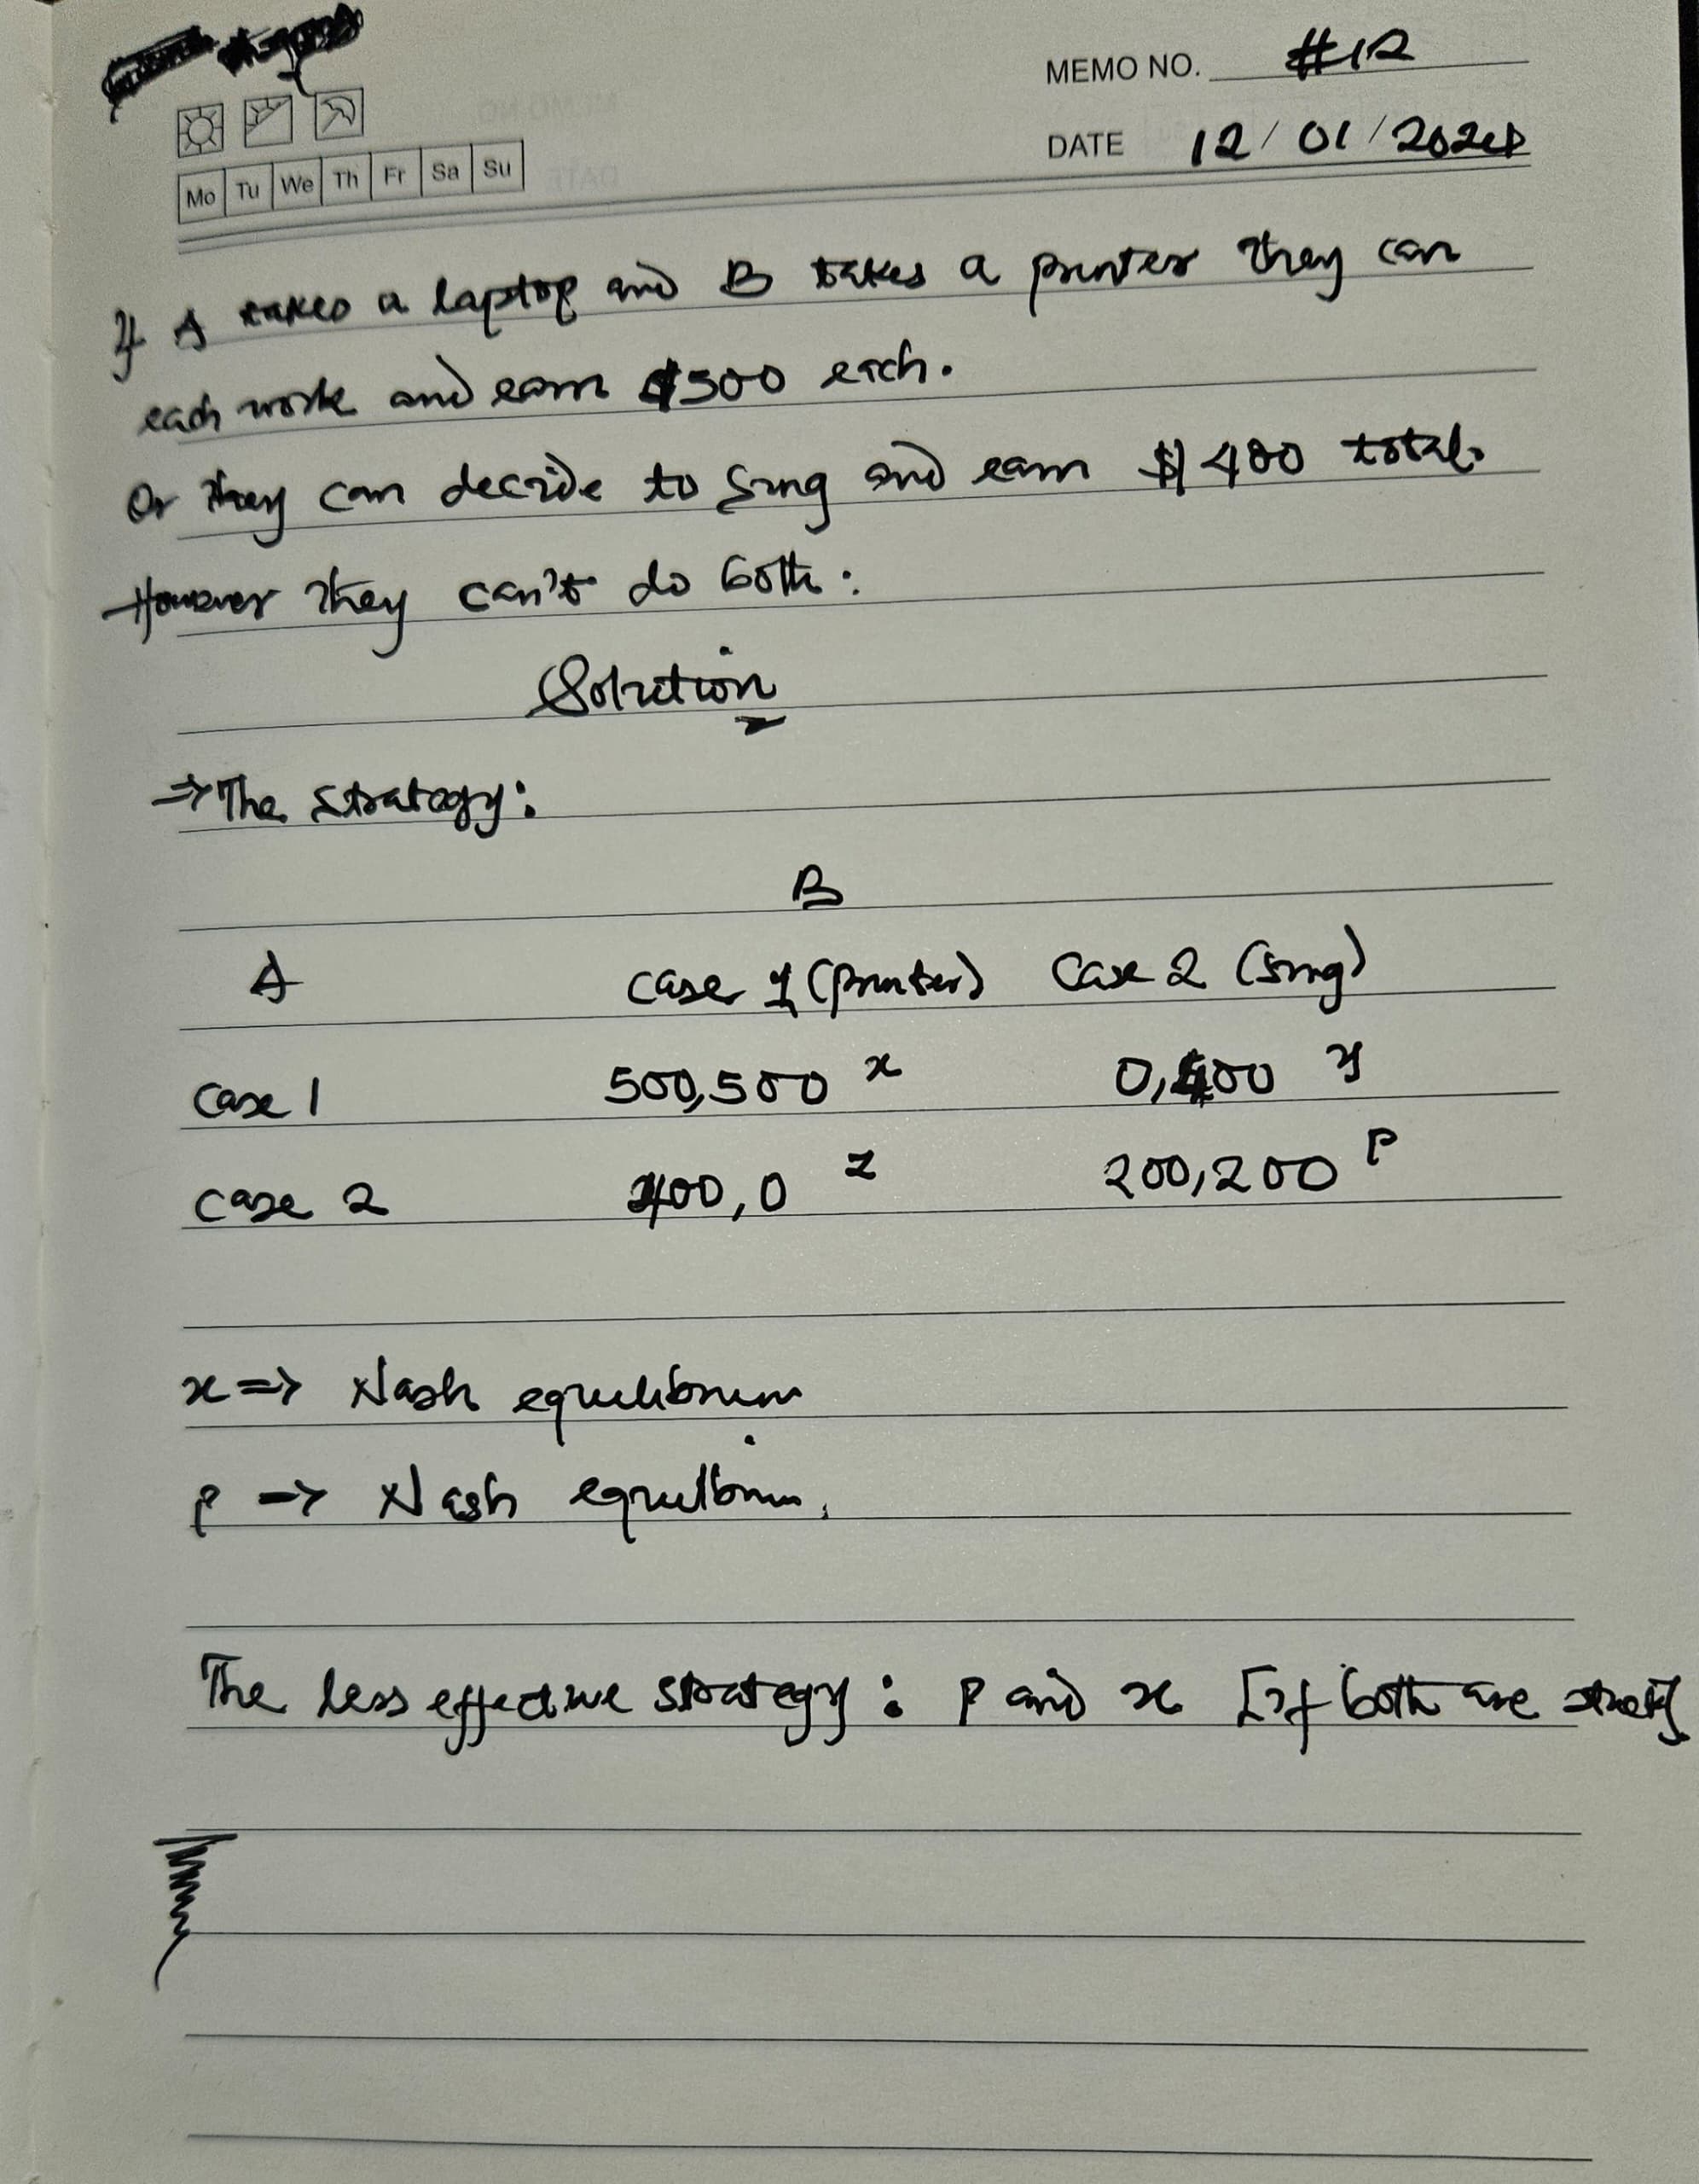 MEMO NO. #12
DATE 12/01/2024
Mo Tu We Th Fr Sa Su
If A takes a laptop and B takes a printer they can
each work and earn $500 each.
Or they can decide to sing and earn $400 total.
However they can't do both:
Solution
⇒The strategy:
B
A case 1 (printer) Case 2 (sing)
Case 1 500,500 x 0,400 y
Case 2 400,0 z 200,200 P
x => Nash equilibrium
P -> Nash equilibrium.
The less effective strategy: P and x [If both are